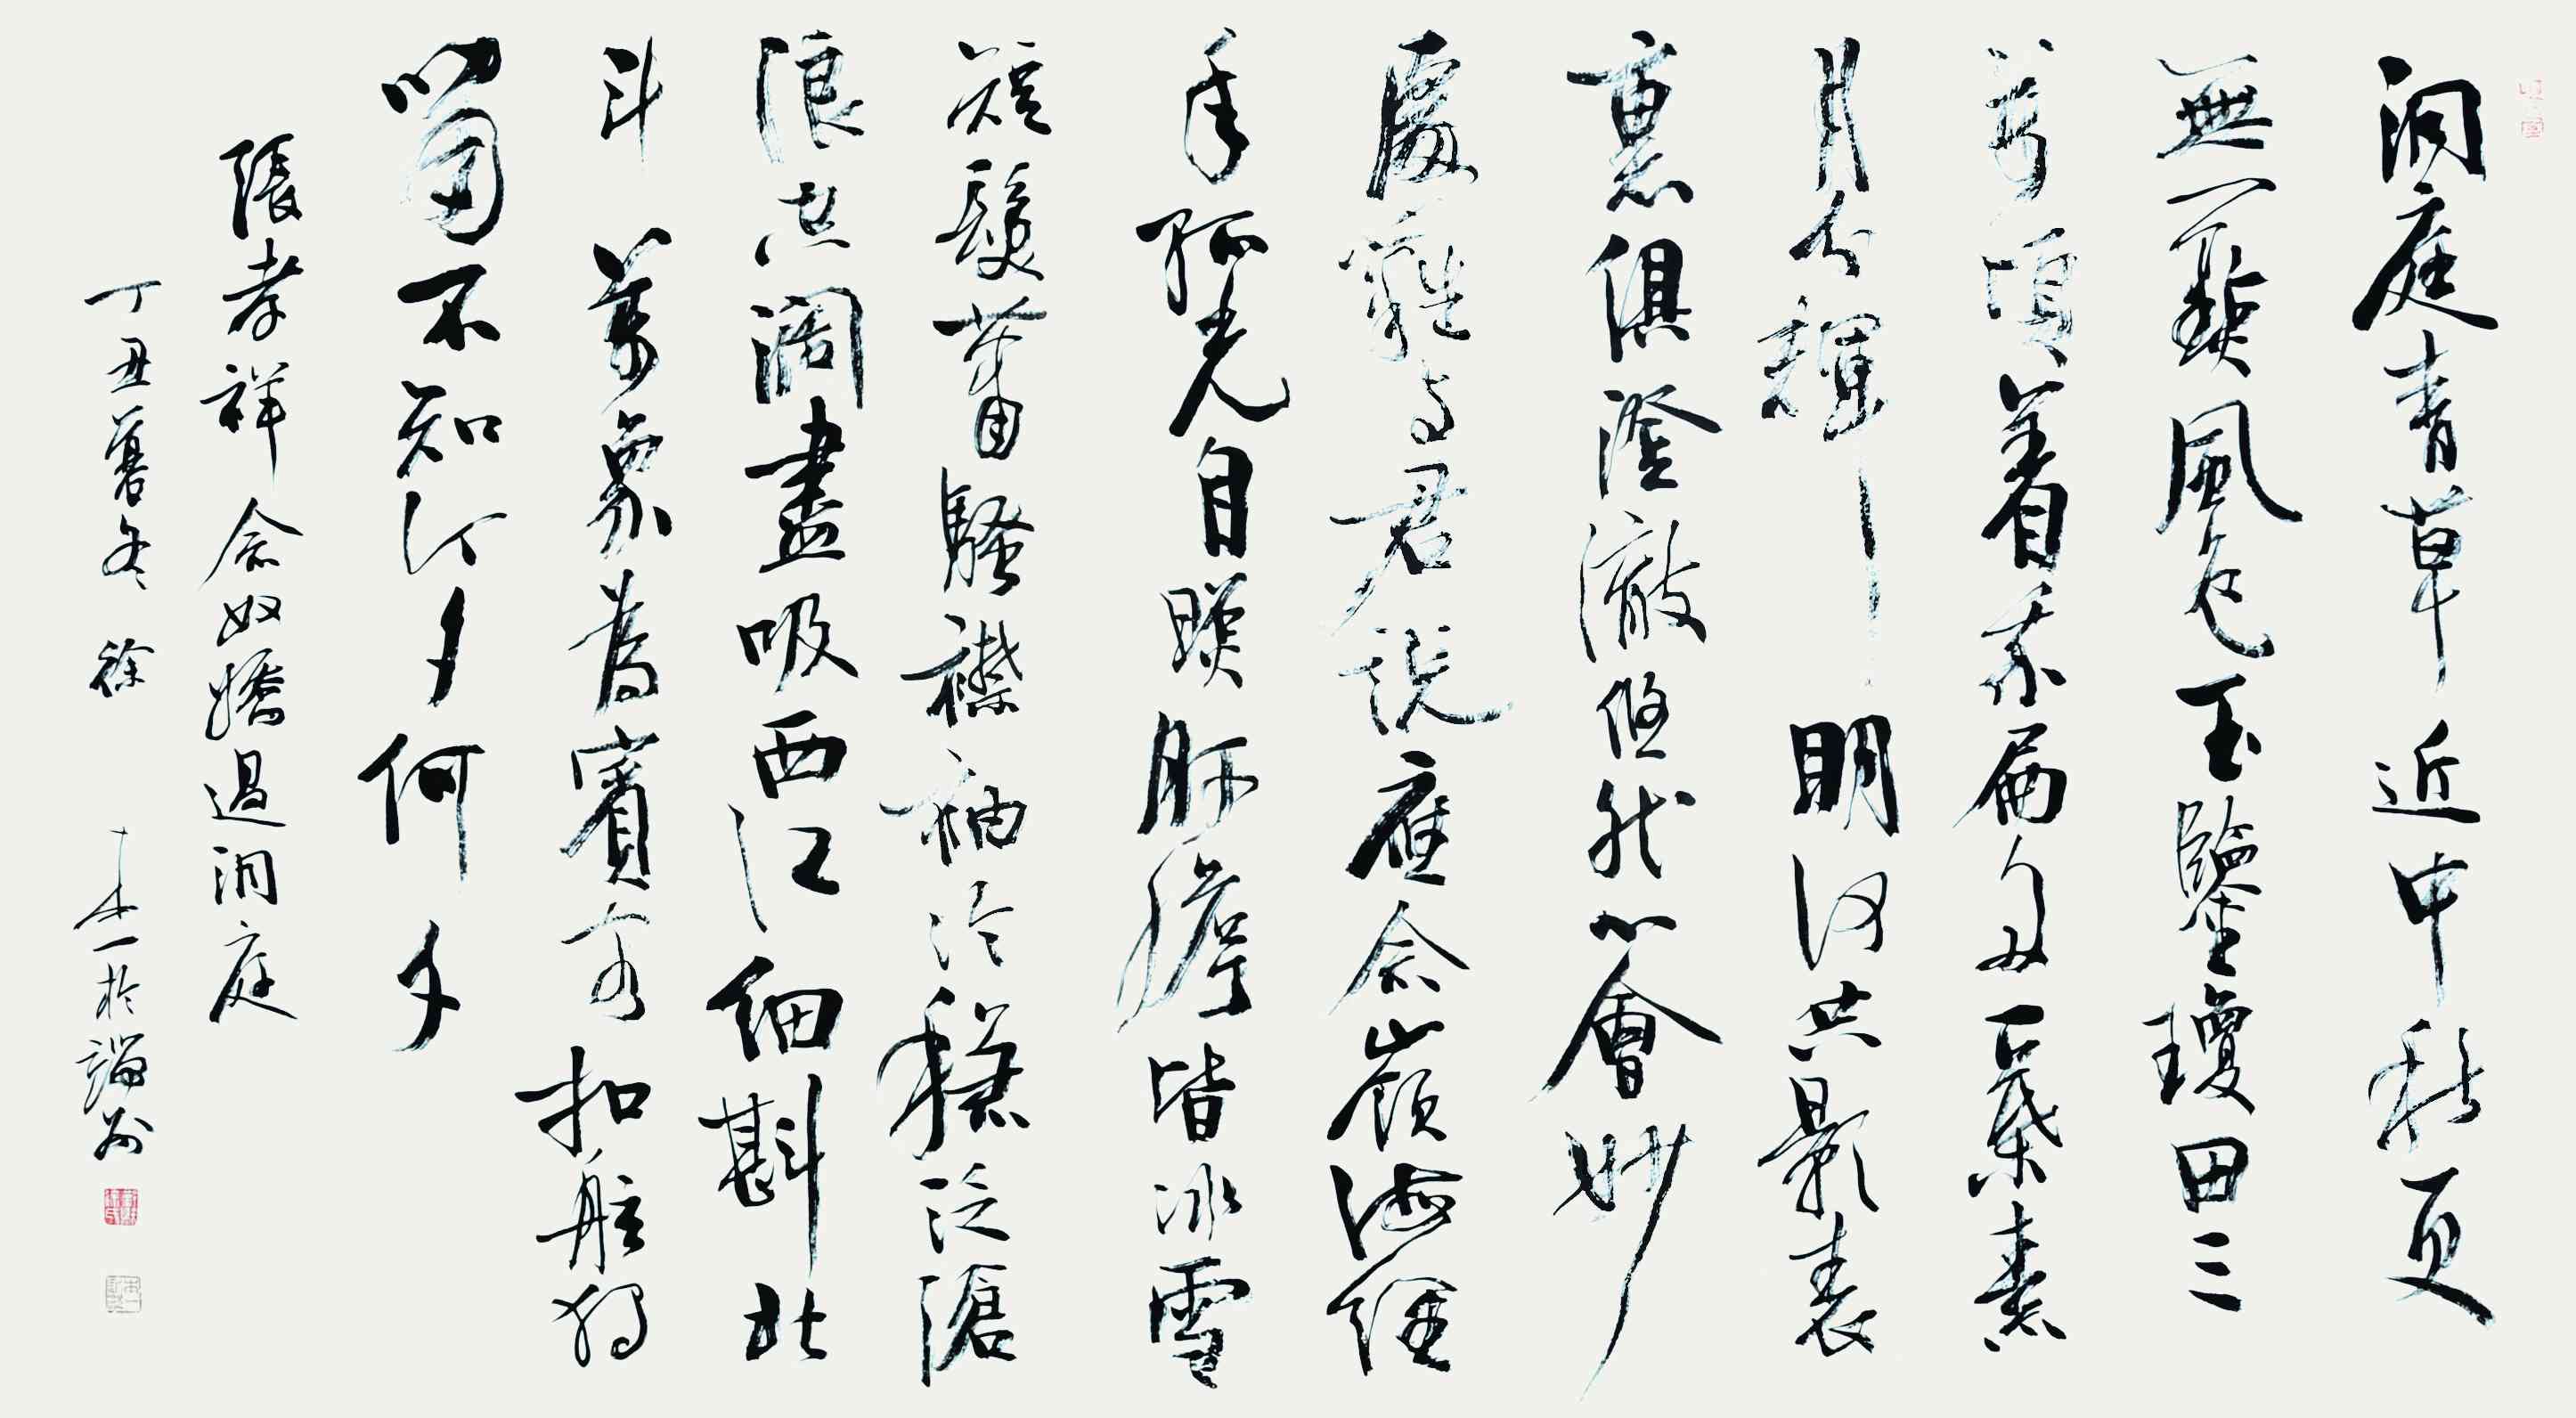 洞庭青草近中秋更
無一點風色玉鑒瓊田三
萬頃著我扁舟一葉素
月分輝明河共影表
裏俱澄澈悠然心會妙
處難與君說應念嶺海經
年孤光自照肝膽皆冰雪
短髮蕭騷襟袖冷穩泛滄
浪空闊盡吸西江細斟北
斗萬象為賓客扣舷獨
嘯不知今夕何夕
張孝祥念奴嬌過洞庭
丁丑暮冬徐一於端州